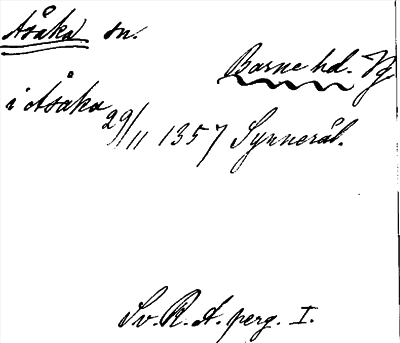 Åsåka sn.
Barne hd. Vg
i Åsaka
29/11 1357 Synnerål.
Sv. R. A. perg. I.